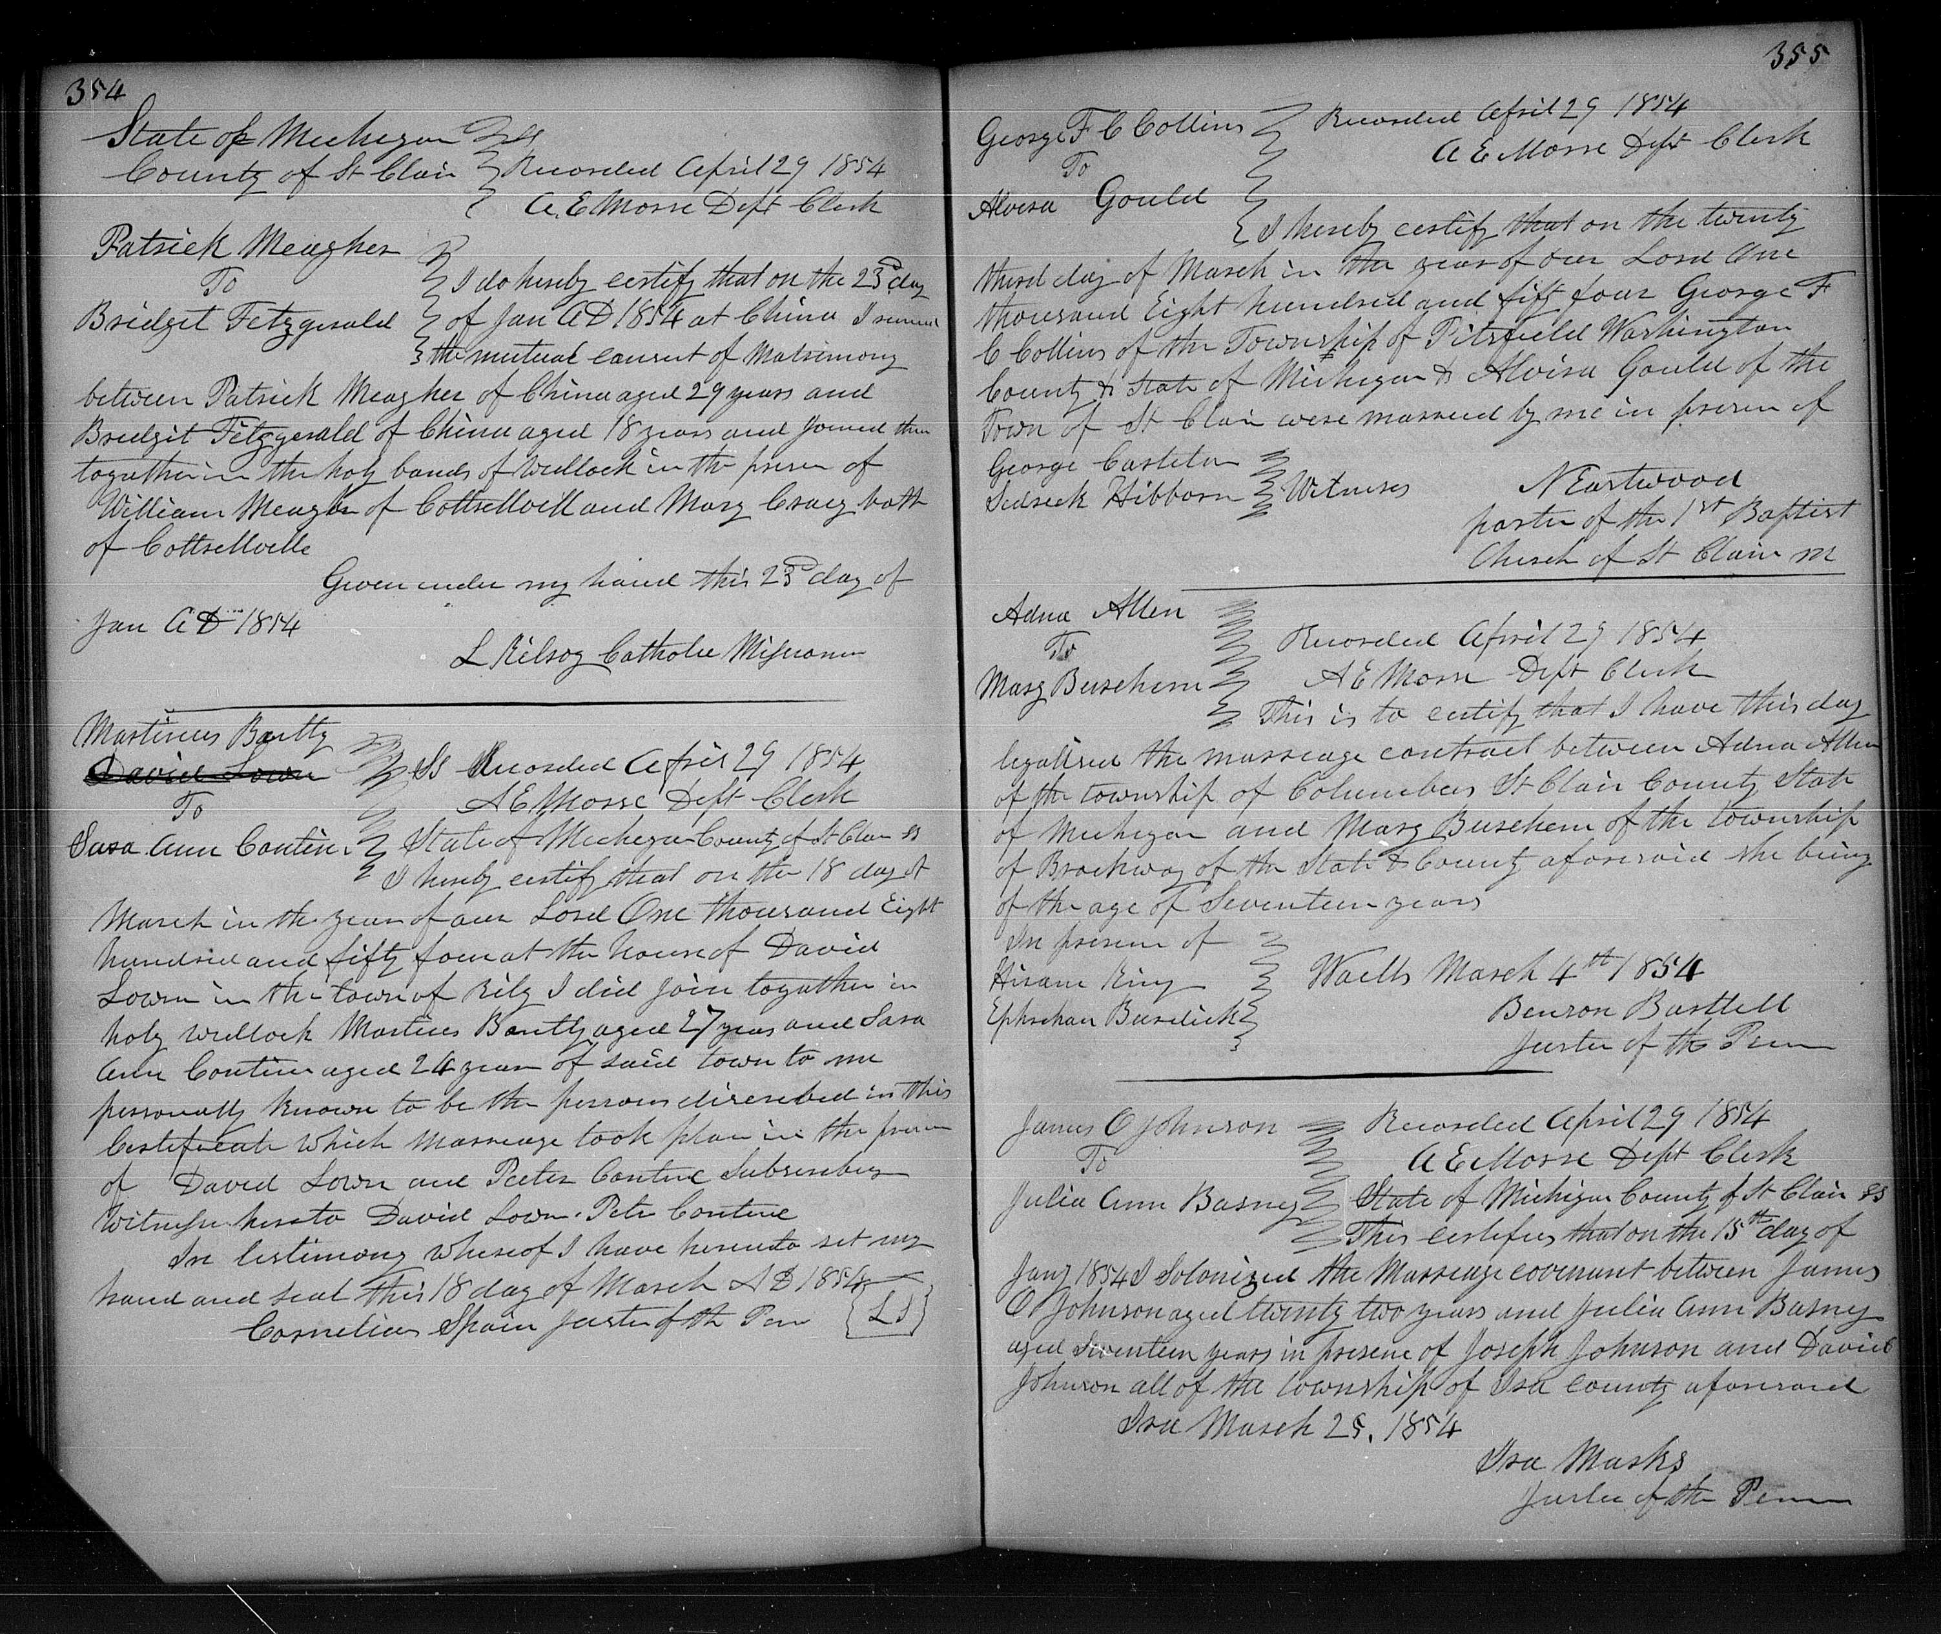 354
State of Michigan ss
County of St Clair Recorded April 29 1854
A. E Morse Dept Clerk
Patrick Meagher
To
I do hereby certify that on the 23d day
Bridgit Fitzgerald of Jan A D 1854 at China I
the mutual consent of Matrimony
between Patrick Meagher of China aged 29 years and
Bridgit Fitzgerald of China aged 18 years and Joined them
togather in the holy bands of Wedlock in the presen of
William Meagher of Cottrellvill and Mary both
of Cottrellville
Given under my hand this 23d day of
Jan A D 1854
L Kilroy Catholic
Martinus Bantty
David Lown
Ss Recorded April 29 1854
To
A E Morse Dept Clerk
Sara Ann Contine State of Michigan County of St Clair ss
I hereby certify that on the 18 day of
March in the year of our Lord One thousand Eight
hundred and fifty four at the house of David
Lown in the town of Rily I did join togather in
holy wedlock Martines Bantty aged 27 years and Sara
Ann Contine aged 24 years of said town to me
personally known to be the persons discribed in this
Certificate which Marriage took place in the presen
of David Lown and Peeter Contine Subscribing
Witnesses hereto David Lown. Peter Contine
In testimony whereof I have hereunto set my
hand and seal this 18 day of March A D 1854
Cornelius Spain Justice of the Peace {L S}
355
George F C Collins Recorded April 29 1854
To
A E Morse Dept Clerk
Alvira Gould
I hereby certify that on the twenty
third day of March in the year of our Lord One
thousand Eight hundred and fift four George F
C Collins of the Township of Pitsfield Washington
County & State of Michigan & Alvira Gould of the
Town of St Clair were married by me in presen of
George Carleton
Sedrick Hibborn Witnesses
N Eastwood
paster of the 1st Baptist
Church of St Clair M
Adna Allen
To
Recorded April 29 1854
Mary Buschem A E Morse Dept Clerk
This is to certify that I have this day
legalised the marreage contract between Adna Allen
of the township of Columbus St Clair County State
of Michigan and Mary Buschem of the township
of Brockway of the State & County aforesaid she being
of the age of Seventeen years
In presence of
Hiram King
Wales March 4th 1854
Ephrehan Burdick
Benson Bartlett
Juster of the Peace
James O Johnson Recorded April 29 1854
To
A E Morse Dept Clerk
Julia Ann Basney State of Michigan County of St Clair ss
This certifies that on the 15th day of
Jany 1854 I Solonized the Marreage covenant between James
O Johnson aged twenty two years and Julia Ann Basney
aged Seventeen years in presence of Joseph Johnson and David
Johnson all of the township of Ira county aforesaid
Ira March 25. 1854
Ira Marks
Justice of the Peace